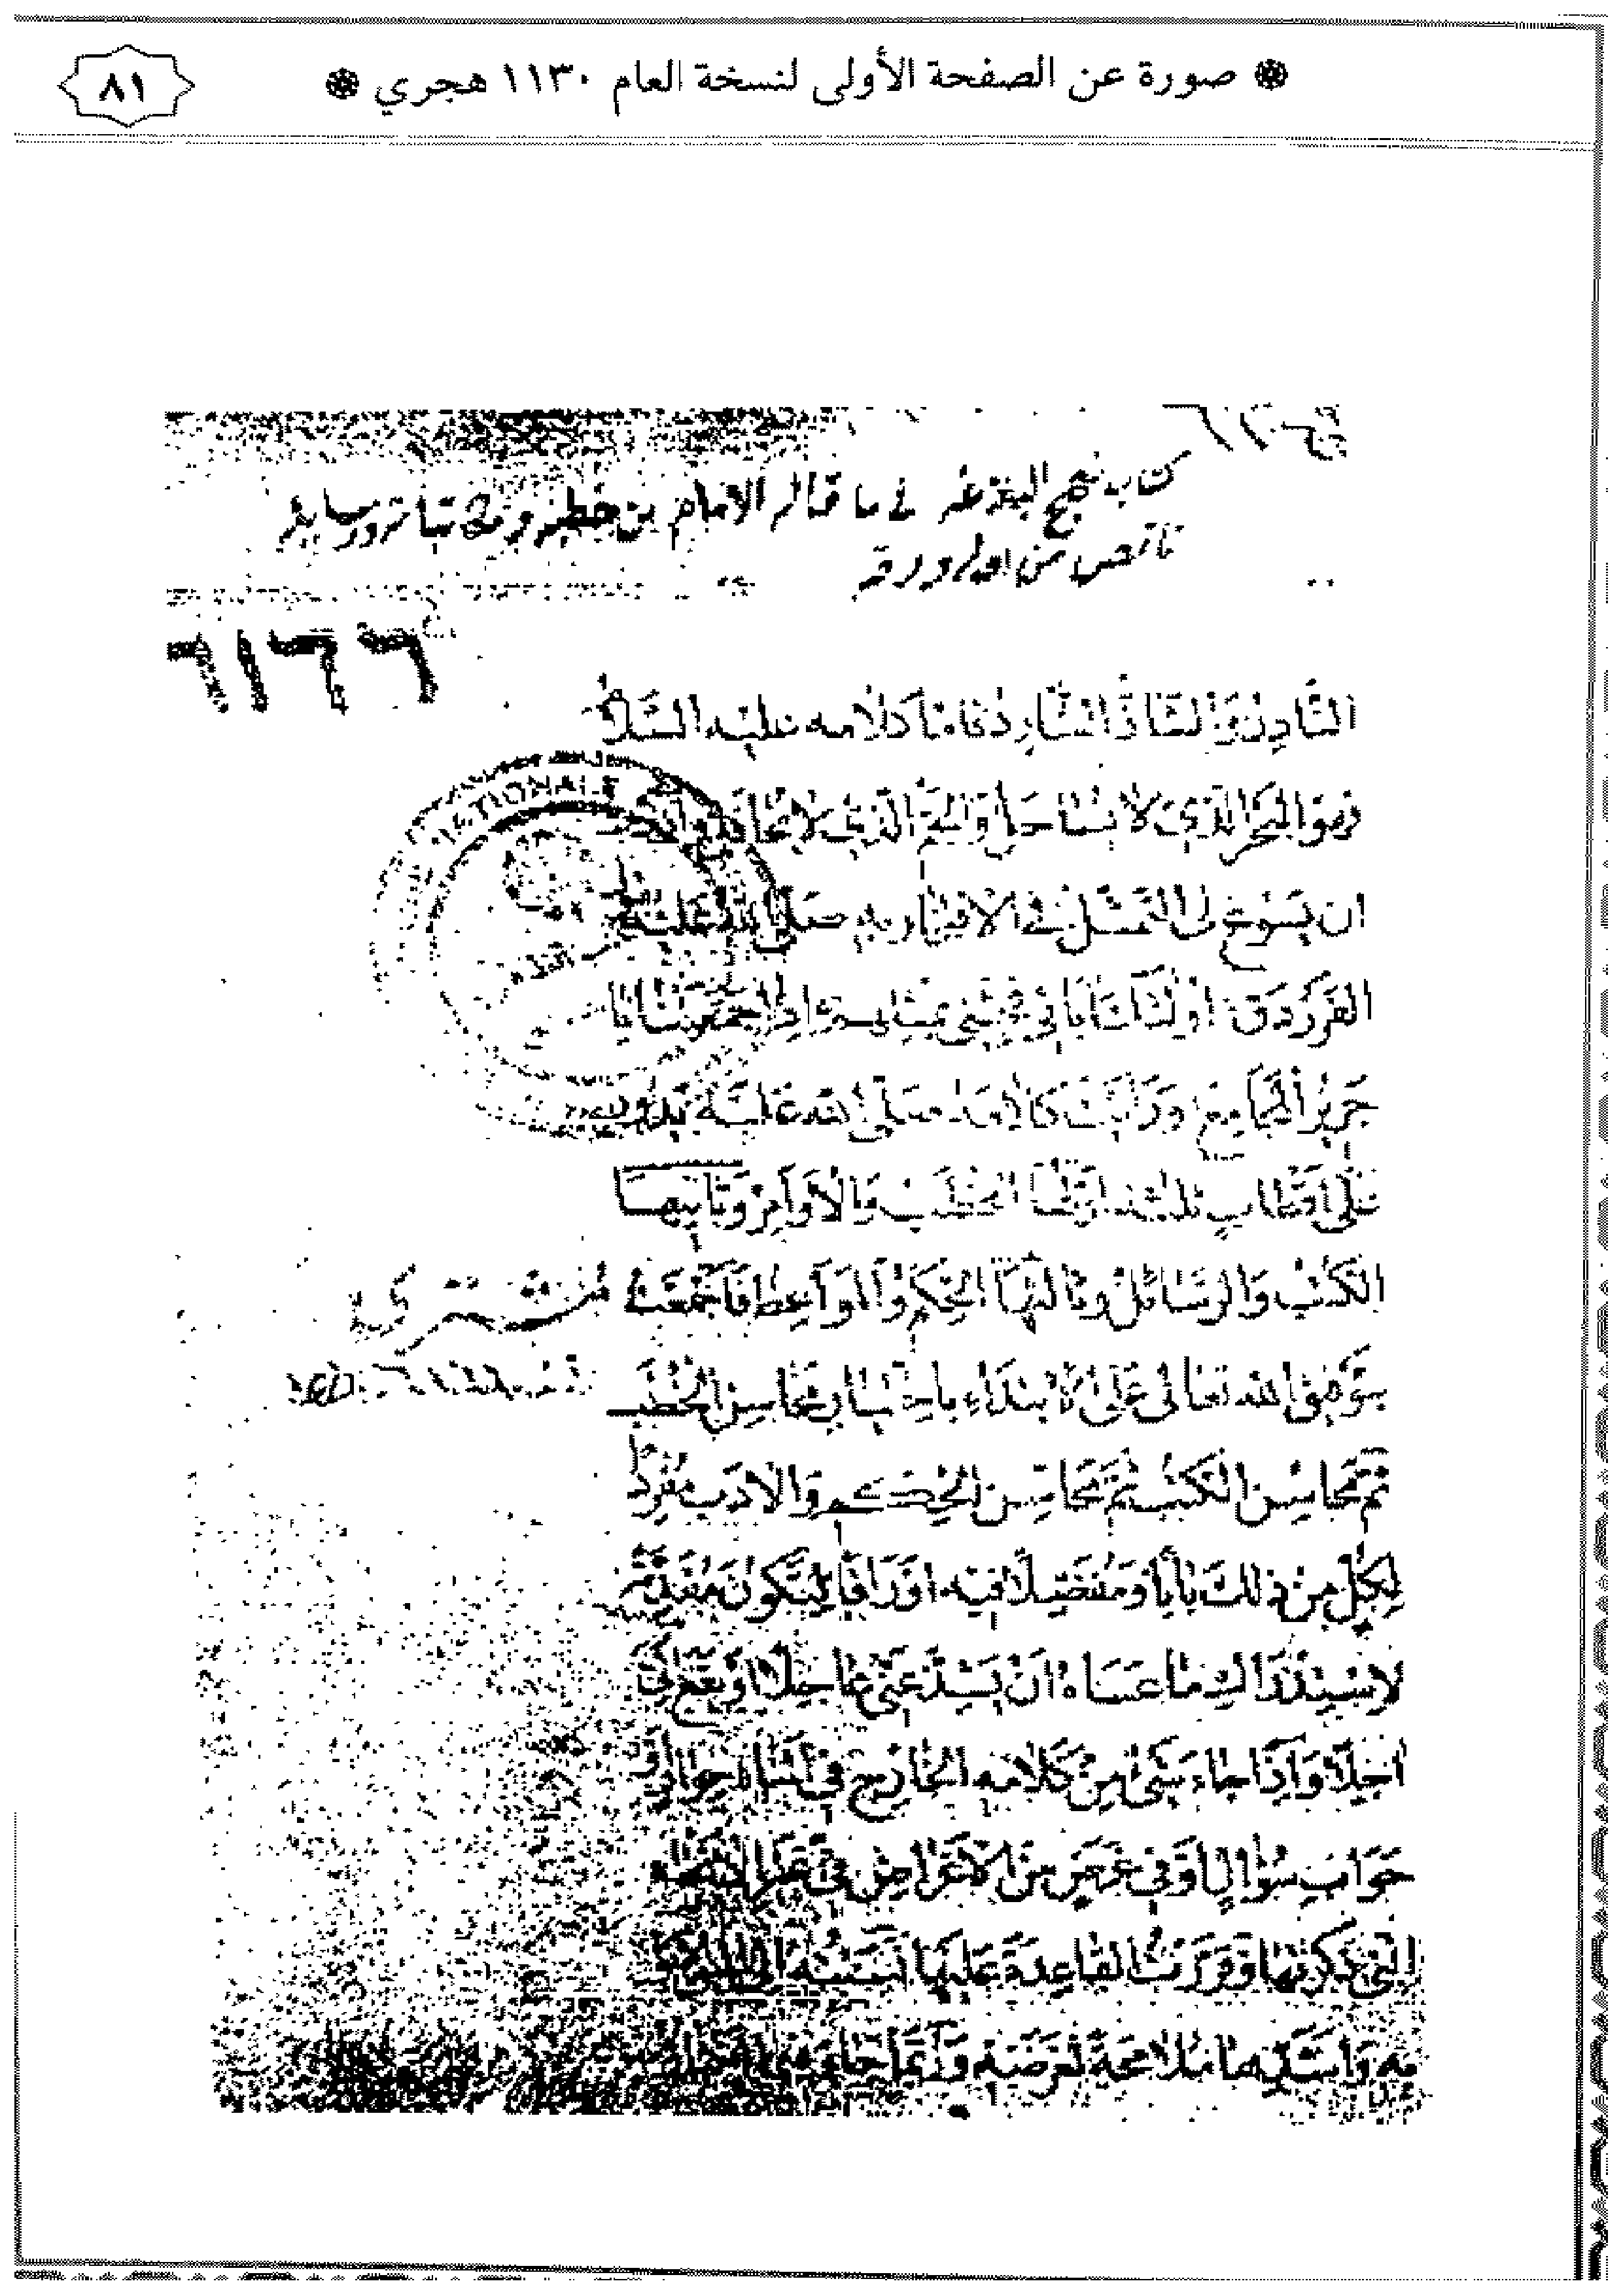 صورة عن الصفحة الأولى لنسخة العام ١١٣٠ هجري
٨١
كتاب نهج البلاغة في ما قاله الامام من خطبه و ورسايله
ناقص من اوله ورقه
٦١٢٦
كلامه عليه السلا
البحر الذي لا يساحل والجم الذي لا يحافل
ان يسوغ لي التمثل في الافتخار به صلى الله عليه
الفرزدق اولئك ابائي فجئني بمثلهم اذا جمعتنا يا
جرير المجامع ورايت كلامه صلى الله عليه يدور
على اقطاب ثلثة اولها الخطب والاوامر وثانيها
الكتب والرسائل وثالثها الحكم والمواعظ فاجمعت
بتوفيق الله تعالى على الابتداء باختيار محاسن الخطب
ثم محاسن الكتب ثم محاسن الحكم والادب مفردا
لكل من ذلك بابا ومفصلا فيه اوراقا لتكون مقدمة
لاستدراك ما عساه ان يشذ عني عاجلا ويقع الي
اجلا واذا جاء شئ من كلامه الخارج في اثناء حوار او
جواب سؤال او في غرض من الاغراض في غير الانحاء
التي ذكرتها وقررت القاعدة عليها نسبته الى اليق
به واشدها ملامحة لغرضه وربما جاء
NATIONALE